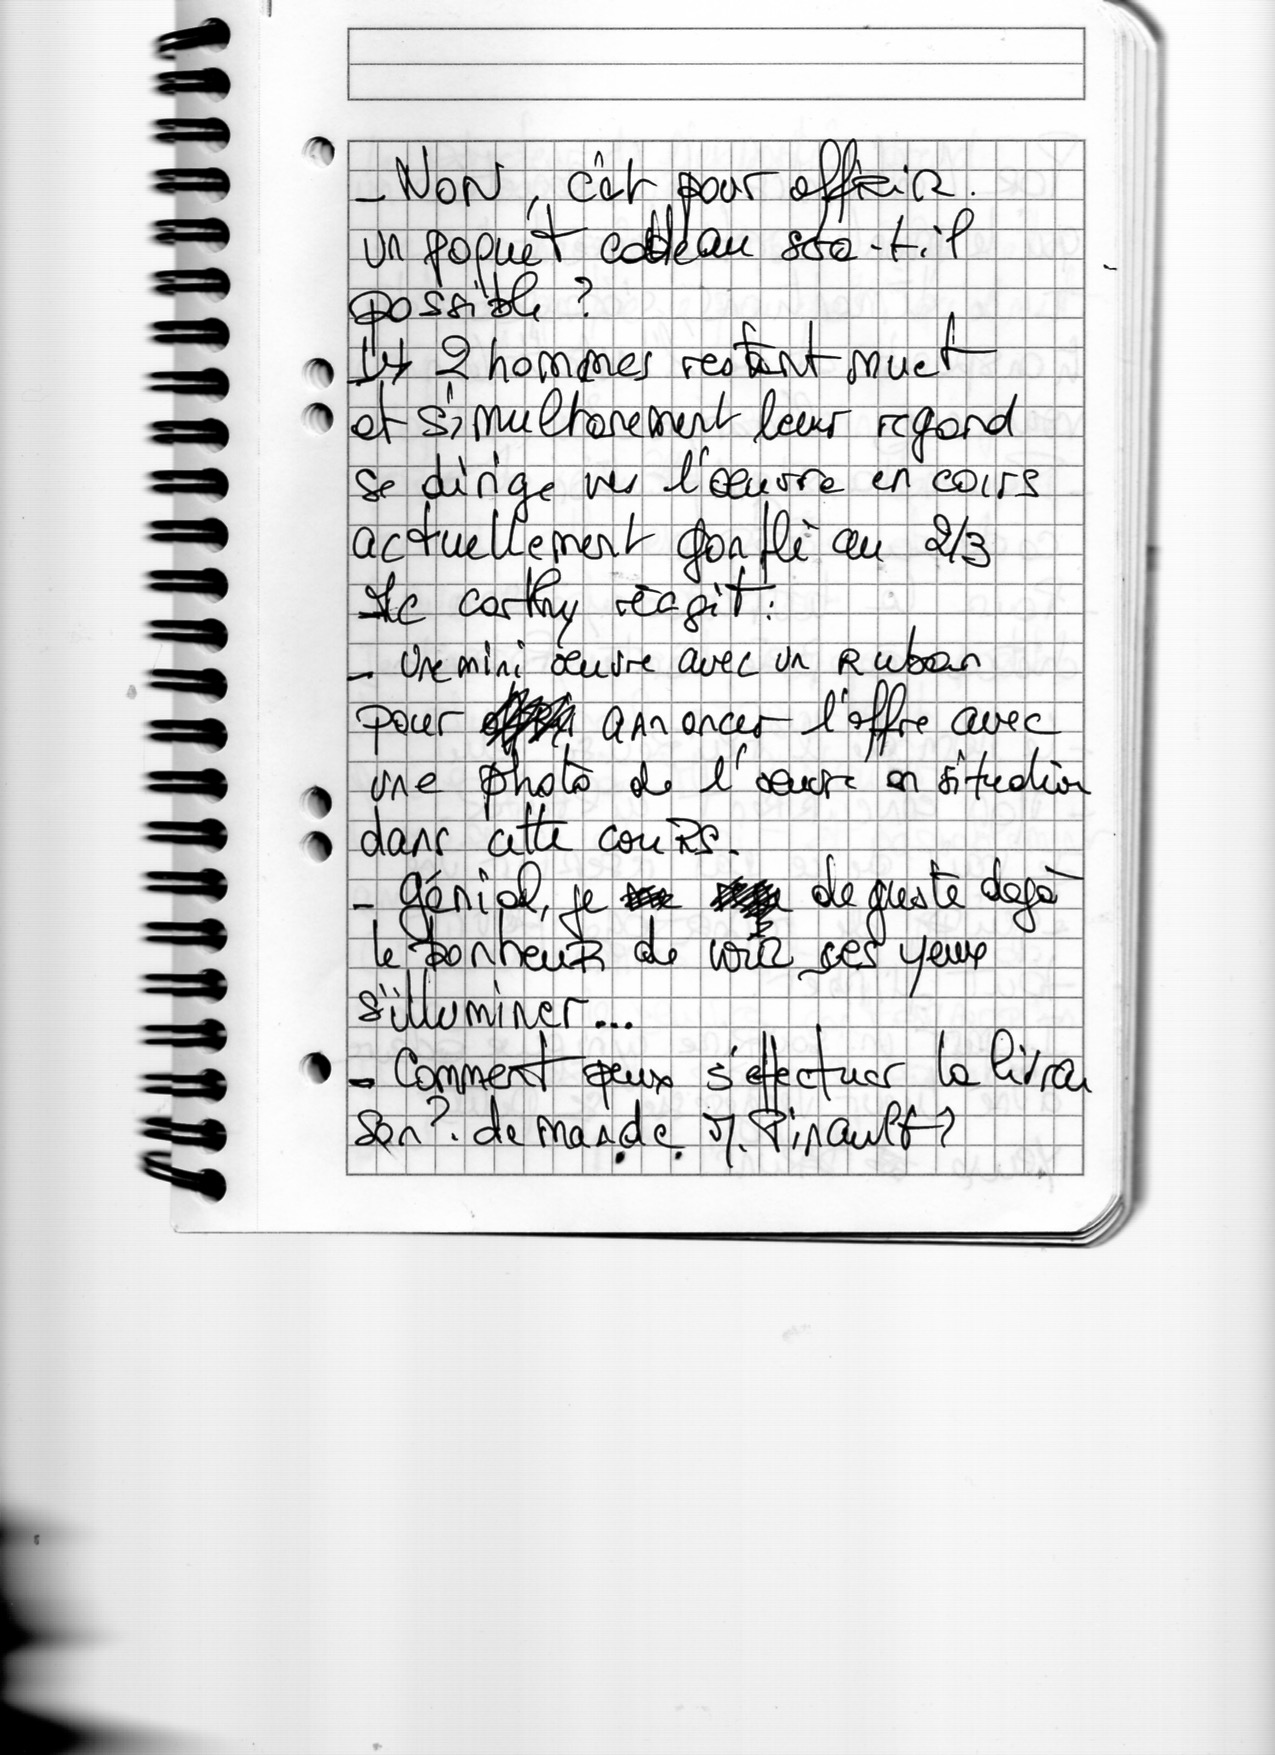 - NON, c'est pour offrir.
un paquet cadeau sera-t-il
possible ?
Les 2 hommes restent muet
et simultanement leur regard
se dirige vers l'œuvre en cours
actuellement gonflé au 2/3
Mc Carthy réagit :
- Une mini œuvre avec un Ruban
pour annoncer l'offre avec
une photo de l'œuvre en situation
dans cette couRs.
- génial, je deguste dejà
le bonheuR de voiR ses yeux
s'illuminer...
- Comment peux s'effectuer la livrai
son ?. demande M. Pinault ?